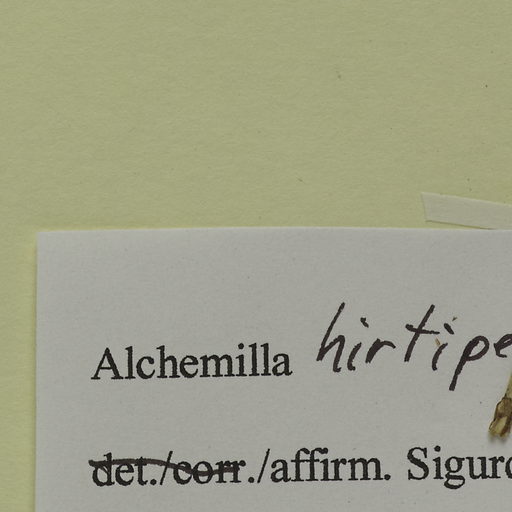 Alchemilla hirtipe
det./corr./affirm. Sigurd